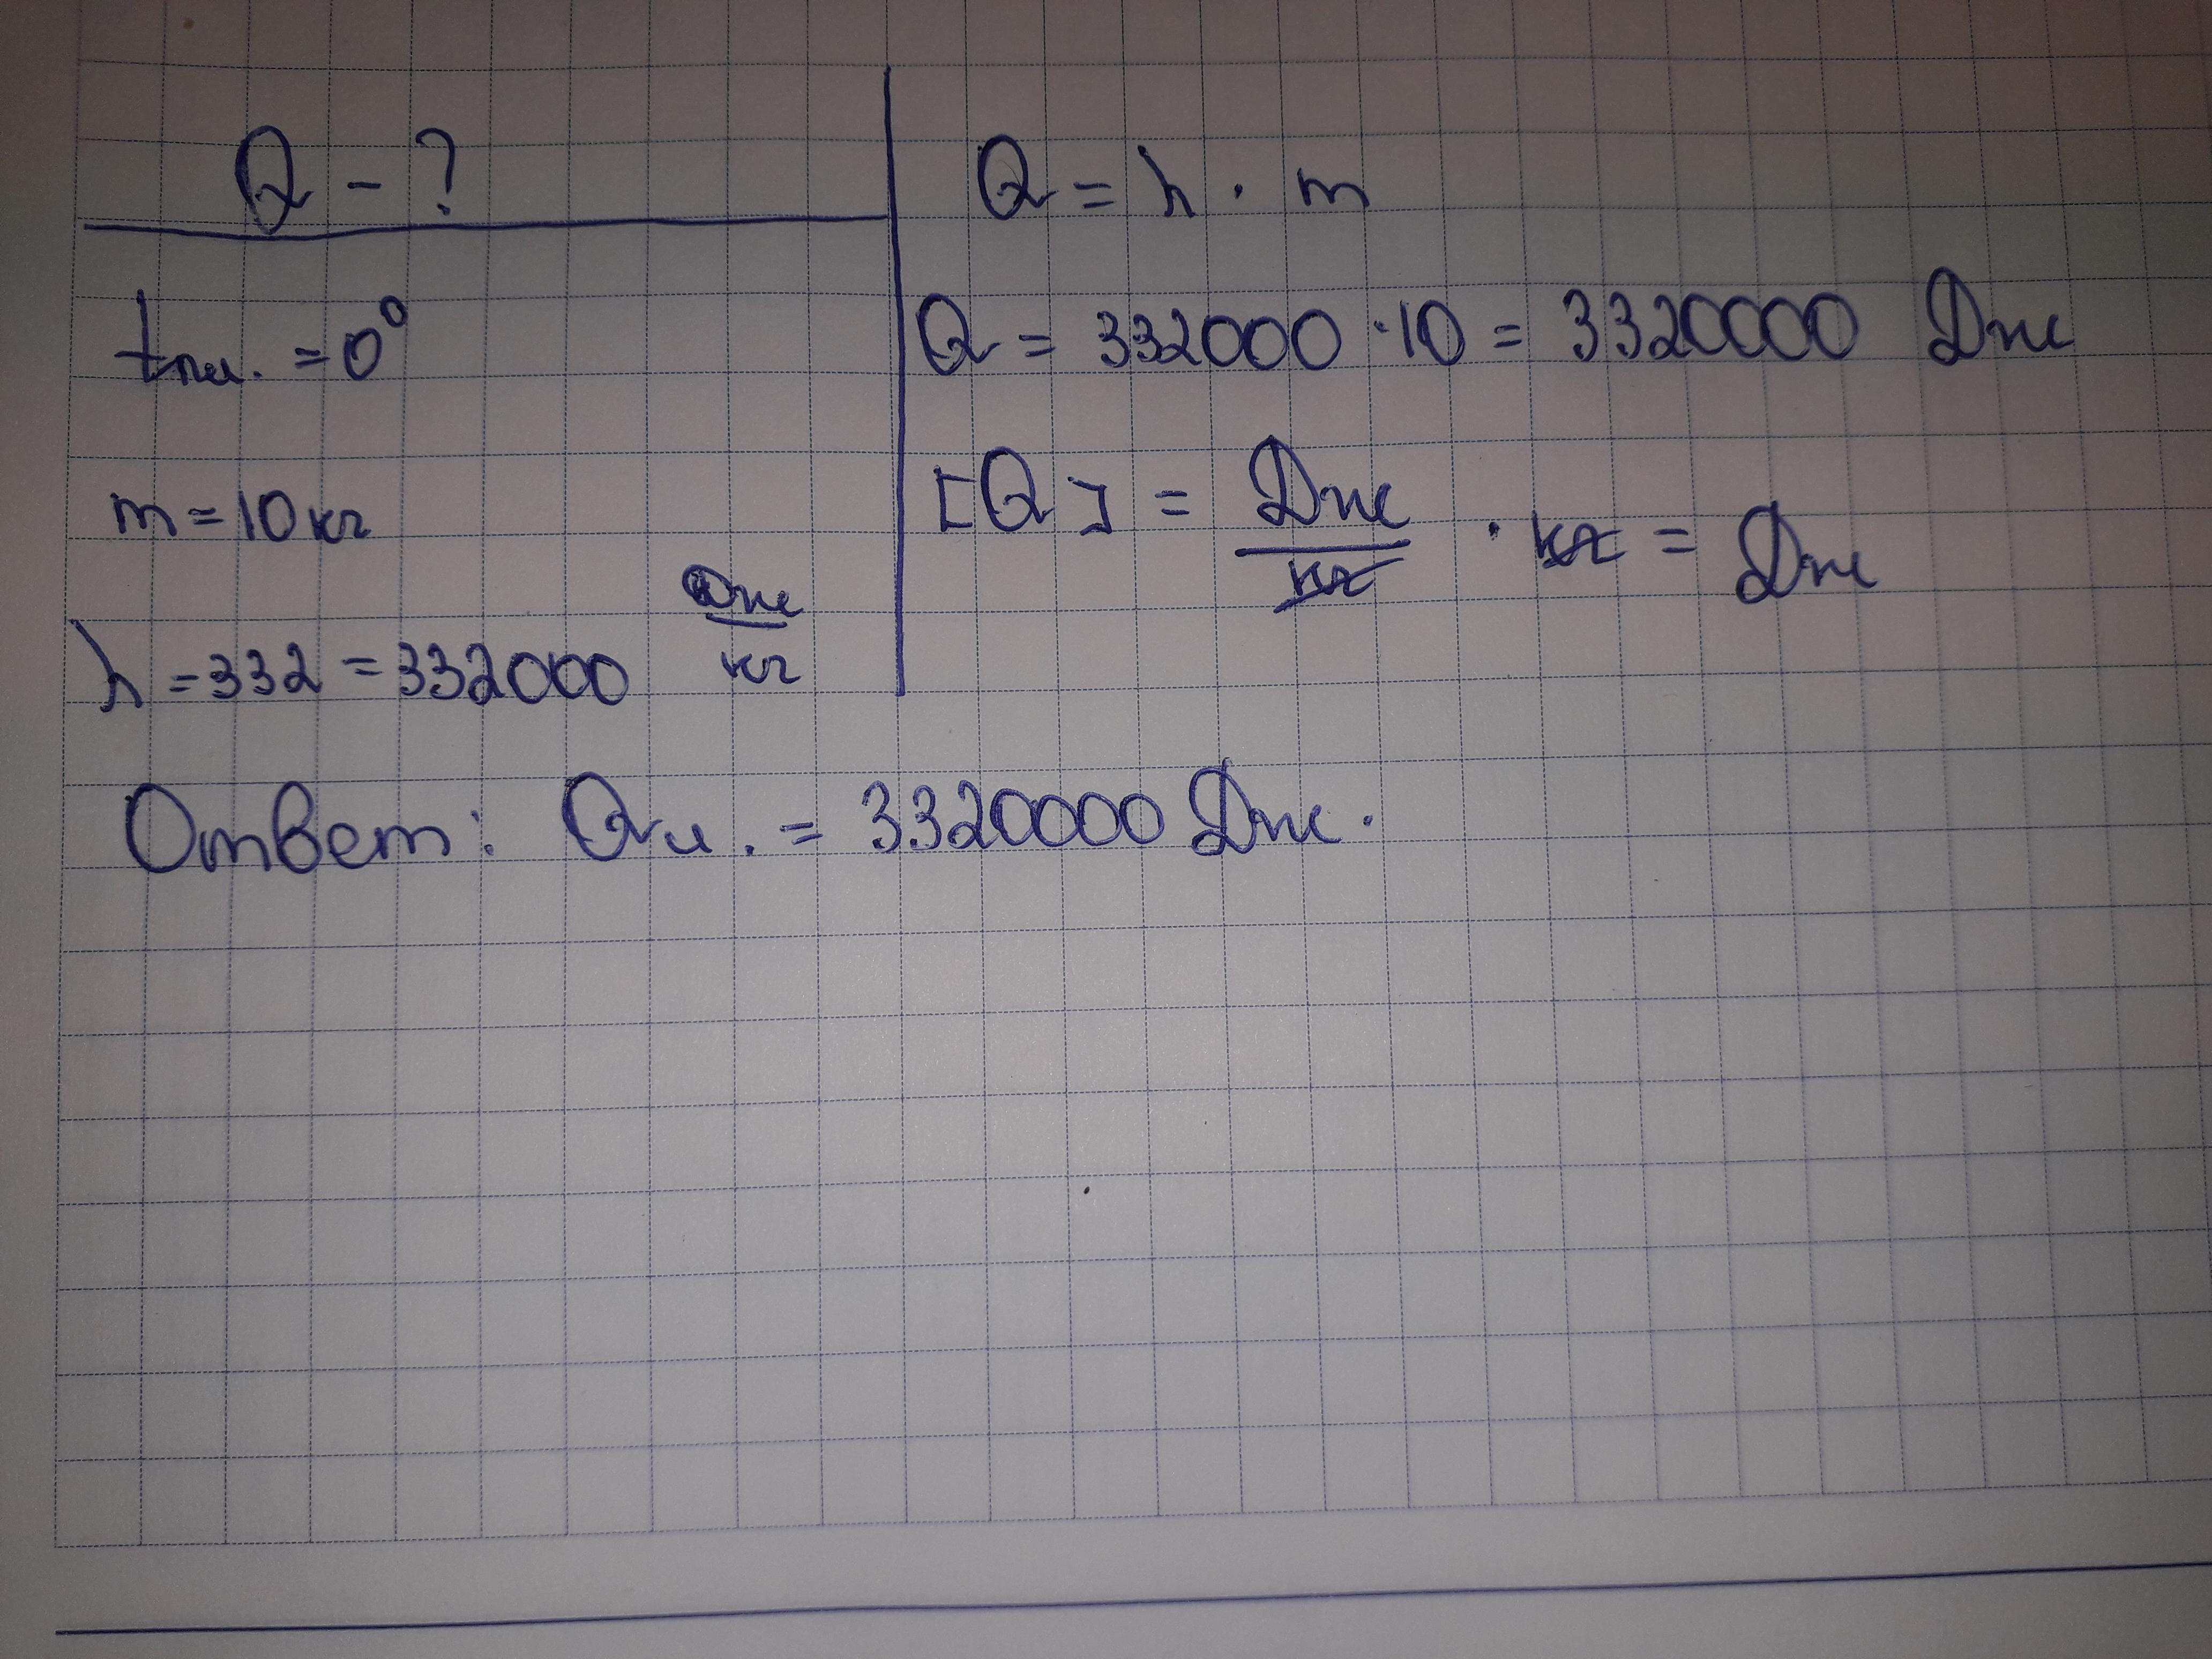 Q - ?
tпл. = 0°
m = 10 кг
λ = 332 = 332000 Дж/кг
Q = λ · m
Q = 332000 · 10 = 3320000 Дж
[Q] = Дж/кг · кг = Дж
Ответ: Qл. = 3320000 Дж.